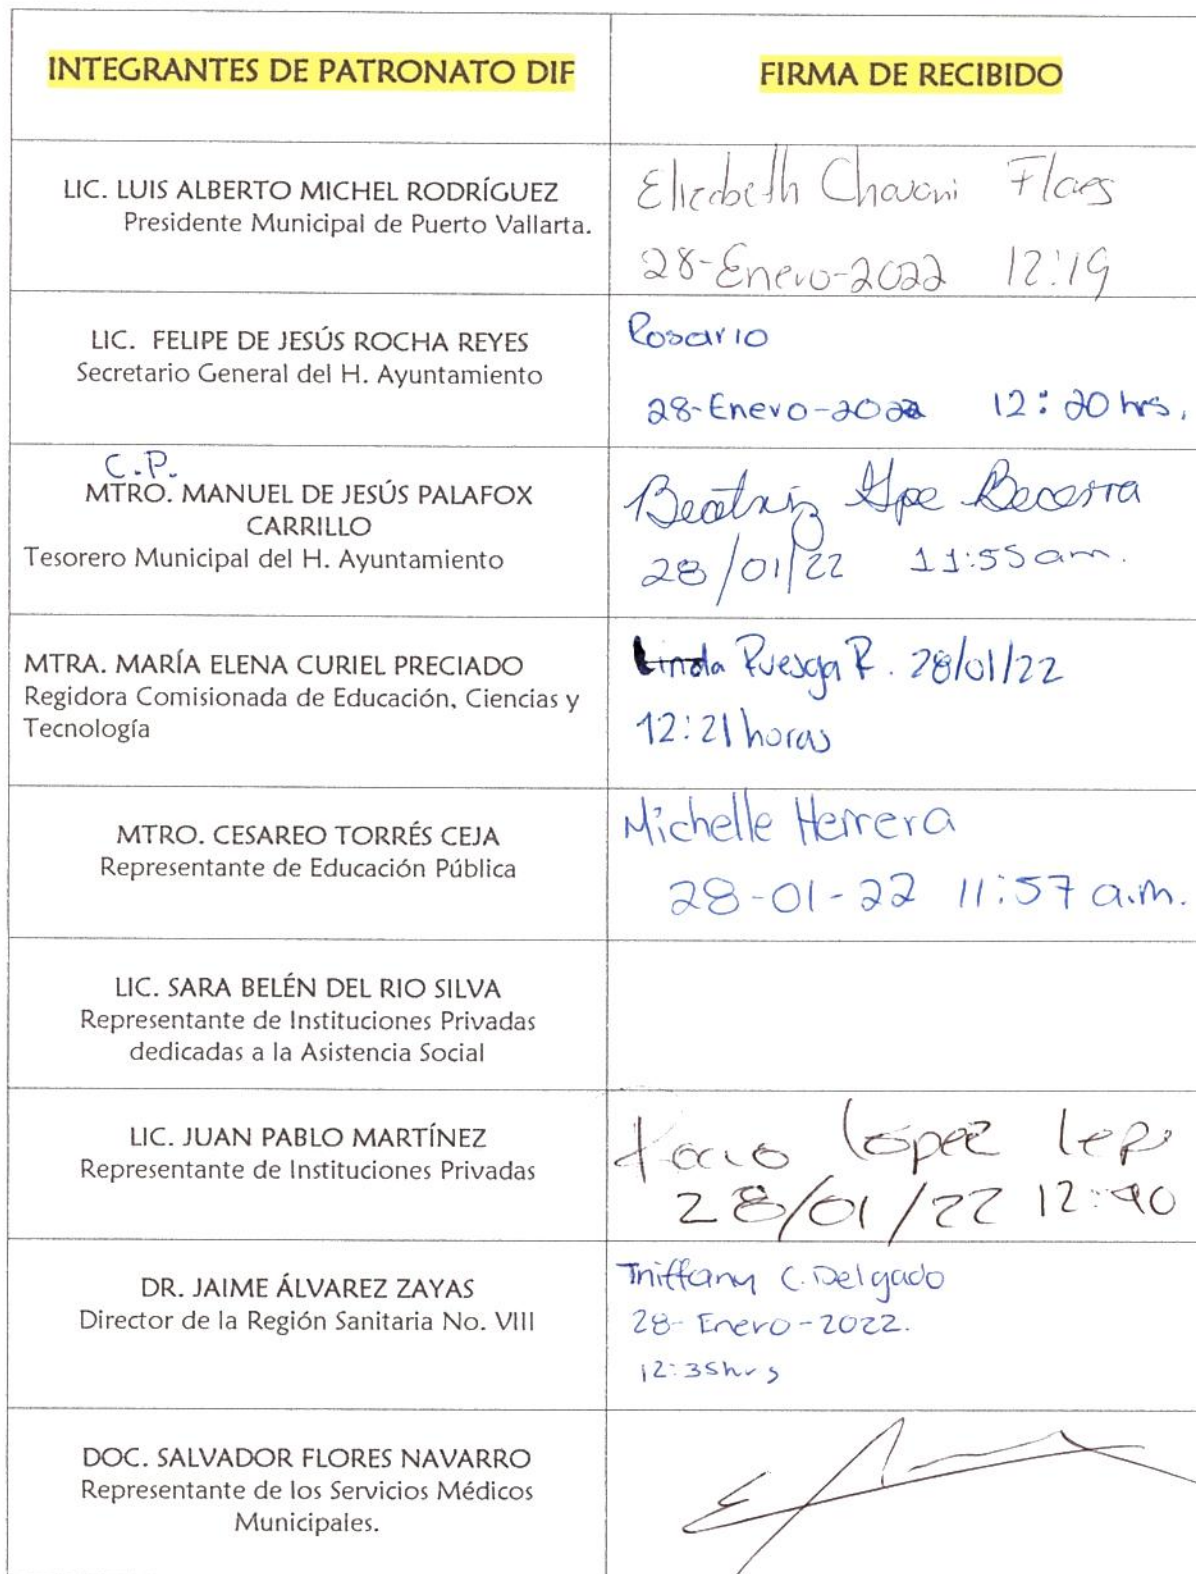 INTEGRANTES DE PATRONATO DIF
FIRMA DE RECIBIDO
LIC. LUIS ALBERTO MICHEL RODRÍGUEZ
Presidente Municipal de Puerto Vallarta.
Elizabeth Chavarri Flores
28-Enero-2022 12:19
LIC. FELIPE DE JESÚS ROCHA REYES
Secretario General del H. Ayuntamiento
Rosario
28-Enero-2022 12:20 hrs.
C.P.
MTRO. MANUEL DE JESÚS PALAFOX
CARRILLO
Tesorero Municipal del H. Ayuntamiento
Beatriz Gpe Becerra
28/01/22 11:55 am.
MTRA. MARÍA ELENA CURIEL PRECIADO
Regidora Comisionada de Educación, Ciencias y
Tecnología
Linda Ruesga R. 28/01/22
12:21 horas
MTRO. CESAREO TORRÉS CEJA
Representante de Educación Pública
Michelle Herrera
28-01-22 11:57 a.m.
LIC. SARA BELÉN DEL RIO SILVA
Representante de Instituciones Privadas
dedicadas a la Asistencia Social
LIC. JUAN PABLO MARTÍNEZ
Representante de Instituciones Privadas
López
28/01/22 12:40
DR. JAIME ÁLVAREZ ZAYAS
Director de la Región Sanitaria No. VIII
Triffany C. Delgado
28-Enero-2022.
12:35hrs
DOC. SALVADOR FLORES NAVARRO
Representante de los Servicios Médicos
Municipales.